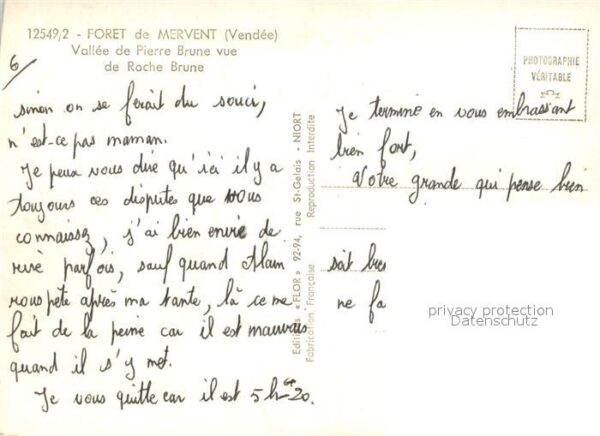 12549,2 - FORET de MERVENT (Vendée)
Vallée de Pierre Brune vue
de Roche Brune
6/
sinon on se ferait du souci,
n'est-ce pas maman.
Je peux vous dire qu'ici il y a
toujours ces disputes que vous
connaissez, j'ai bien envie de
rire parfois, sauf quand Alain
rouspète après ma tante, là ce me
fait de la peine car il est mauvais
quand il s'y met.
Je vous quitte car il est 5 h 20.
Editions « FLOR » 92-94, rue St-Gelais - NIORT
Fabrication Française Reproduction Interdite
PHOTOGRAPHIE
VÉRITABLE
Je termine en vous embrassant
bien fort,
Votre grande qui pense bien
soit
ne
privacy protection
Datenschutz